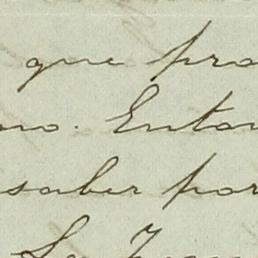 que pro
no. Enton
saber por
La